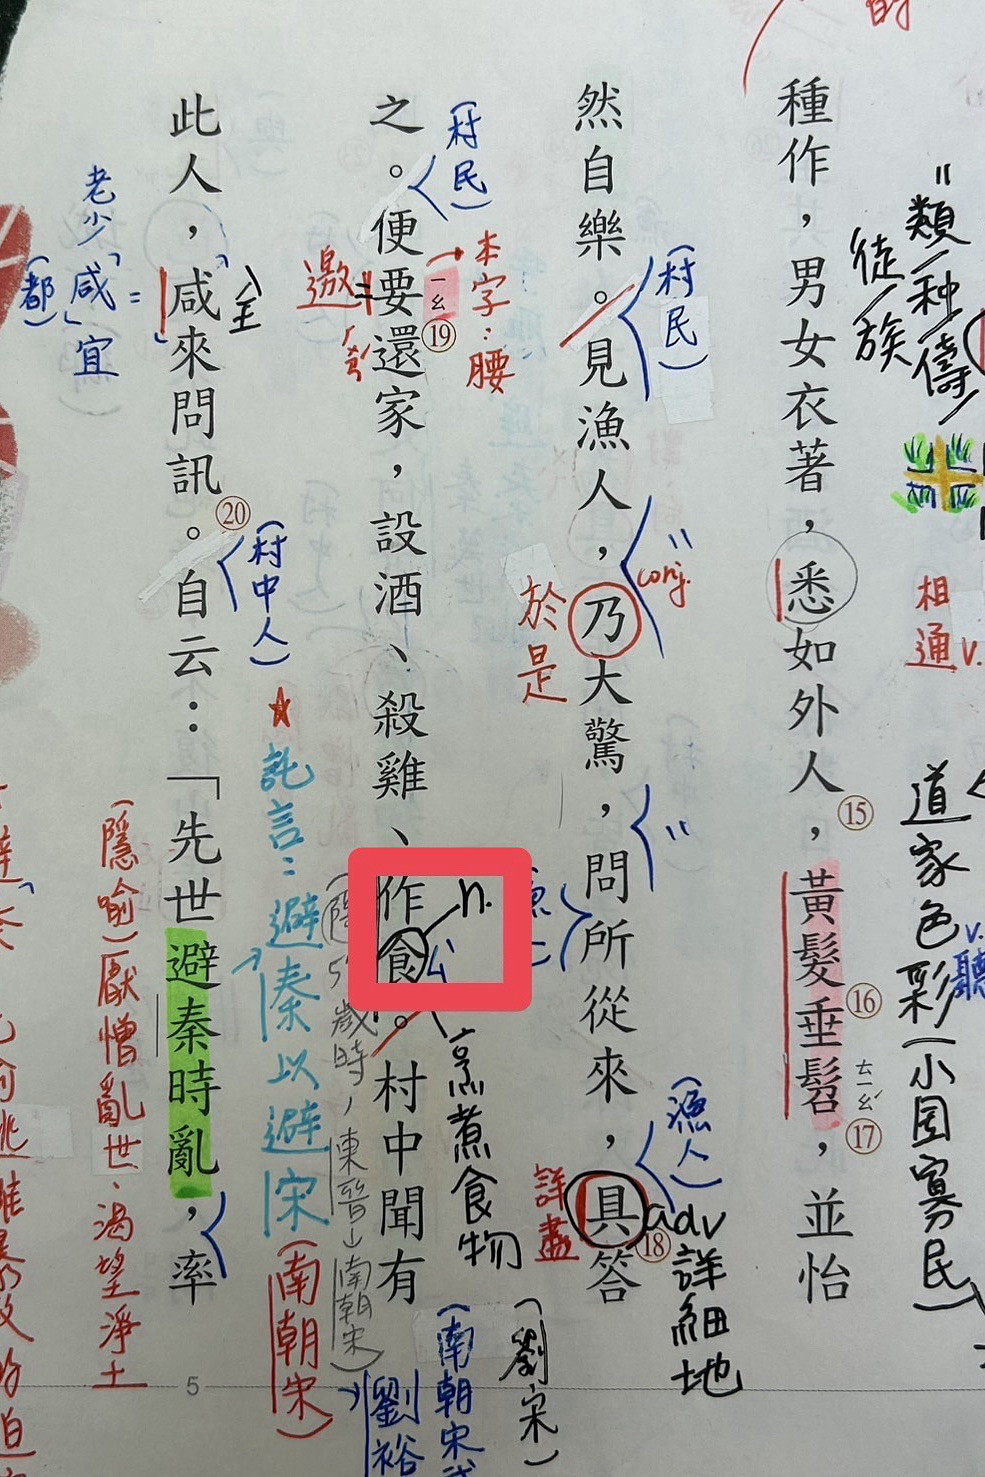 的
=類/种/儔/
徒/族
相通v.
道家色彩(小国寡民)
v.聽
種作，其男女衣著，悉如外人⑮，黃髮⑯垂髫ㄊㄧㄠˊ⑰，並怡
(村民)
"
conj.
"
(漁人)
adv詳細地
然自樂。見漁人，乃大驚，問所從來，具⑱答
於是
詳盡
(村民)
本字：腰
n.
烹煮食物
(劉宋)
之。便要ㄧㄠ⑲還家，設酒、殺雞、作食。村中聞有
邀=
(南朝宋武
劉裕
(村中人)
★託言：避秦以避宋(南朝宋)
歲時，東晉→南朝宋)
此人，咸來問訊⑳。自云：「先世避秦時亂，率
老少「咸」宜
(都)=
(隱喻)厭憎亂世、渴望淨土
5